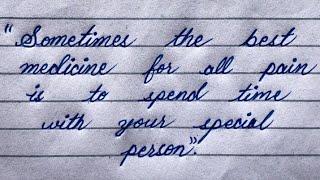 "Sometimes the best
medicine for all pain
is to spend time
with your special
person".